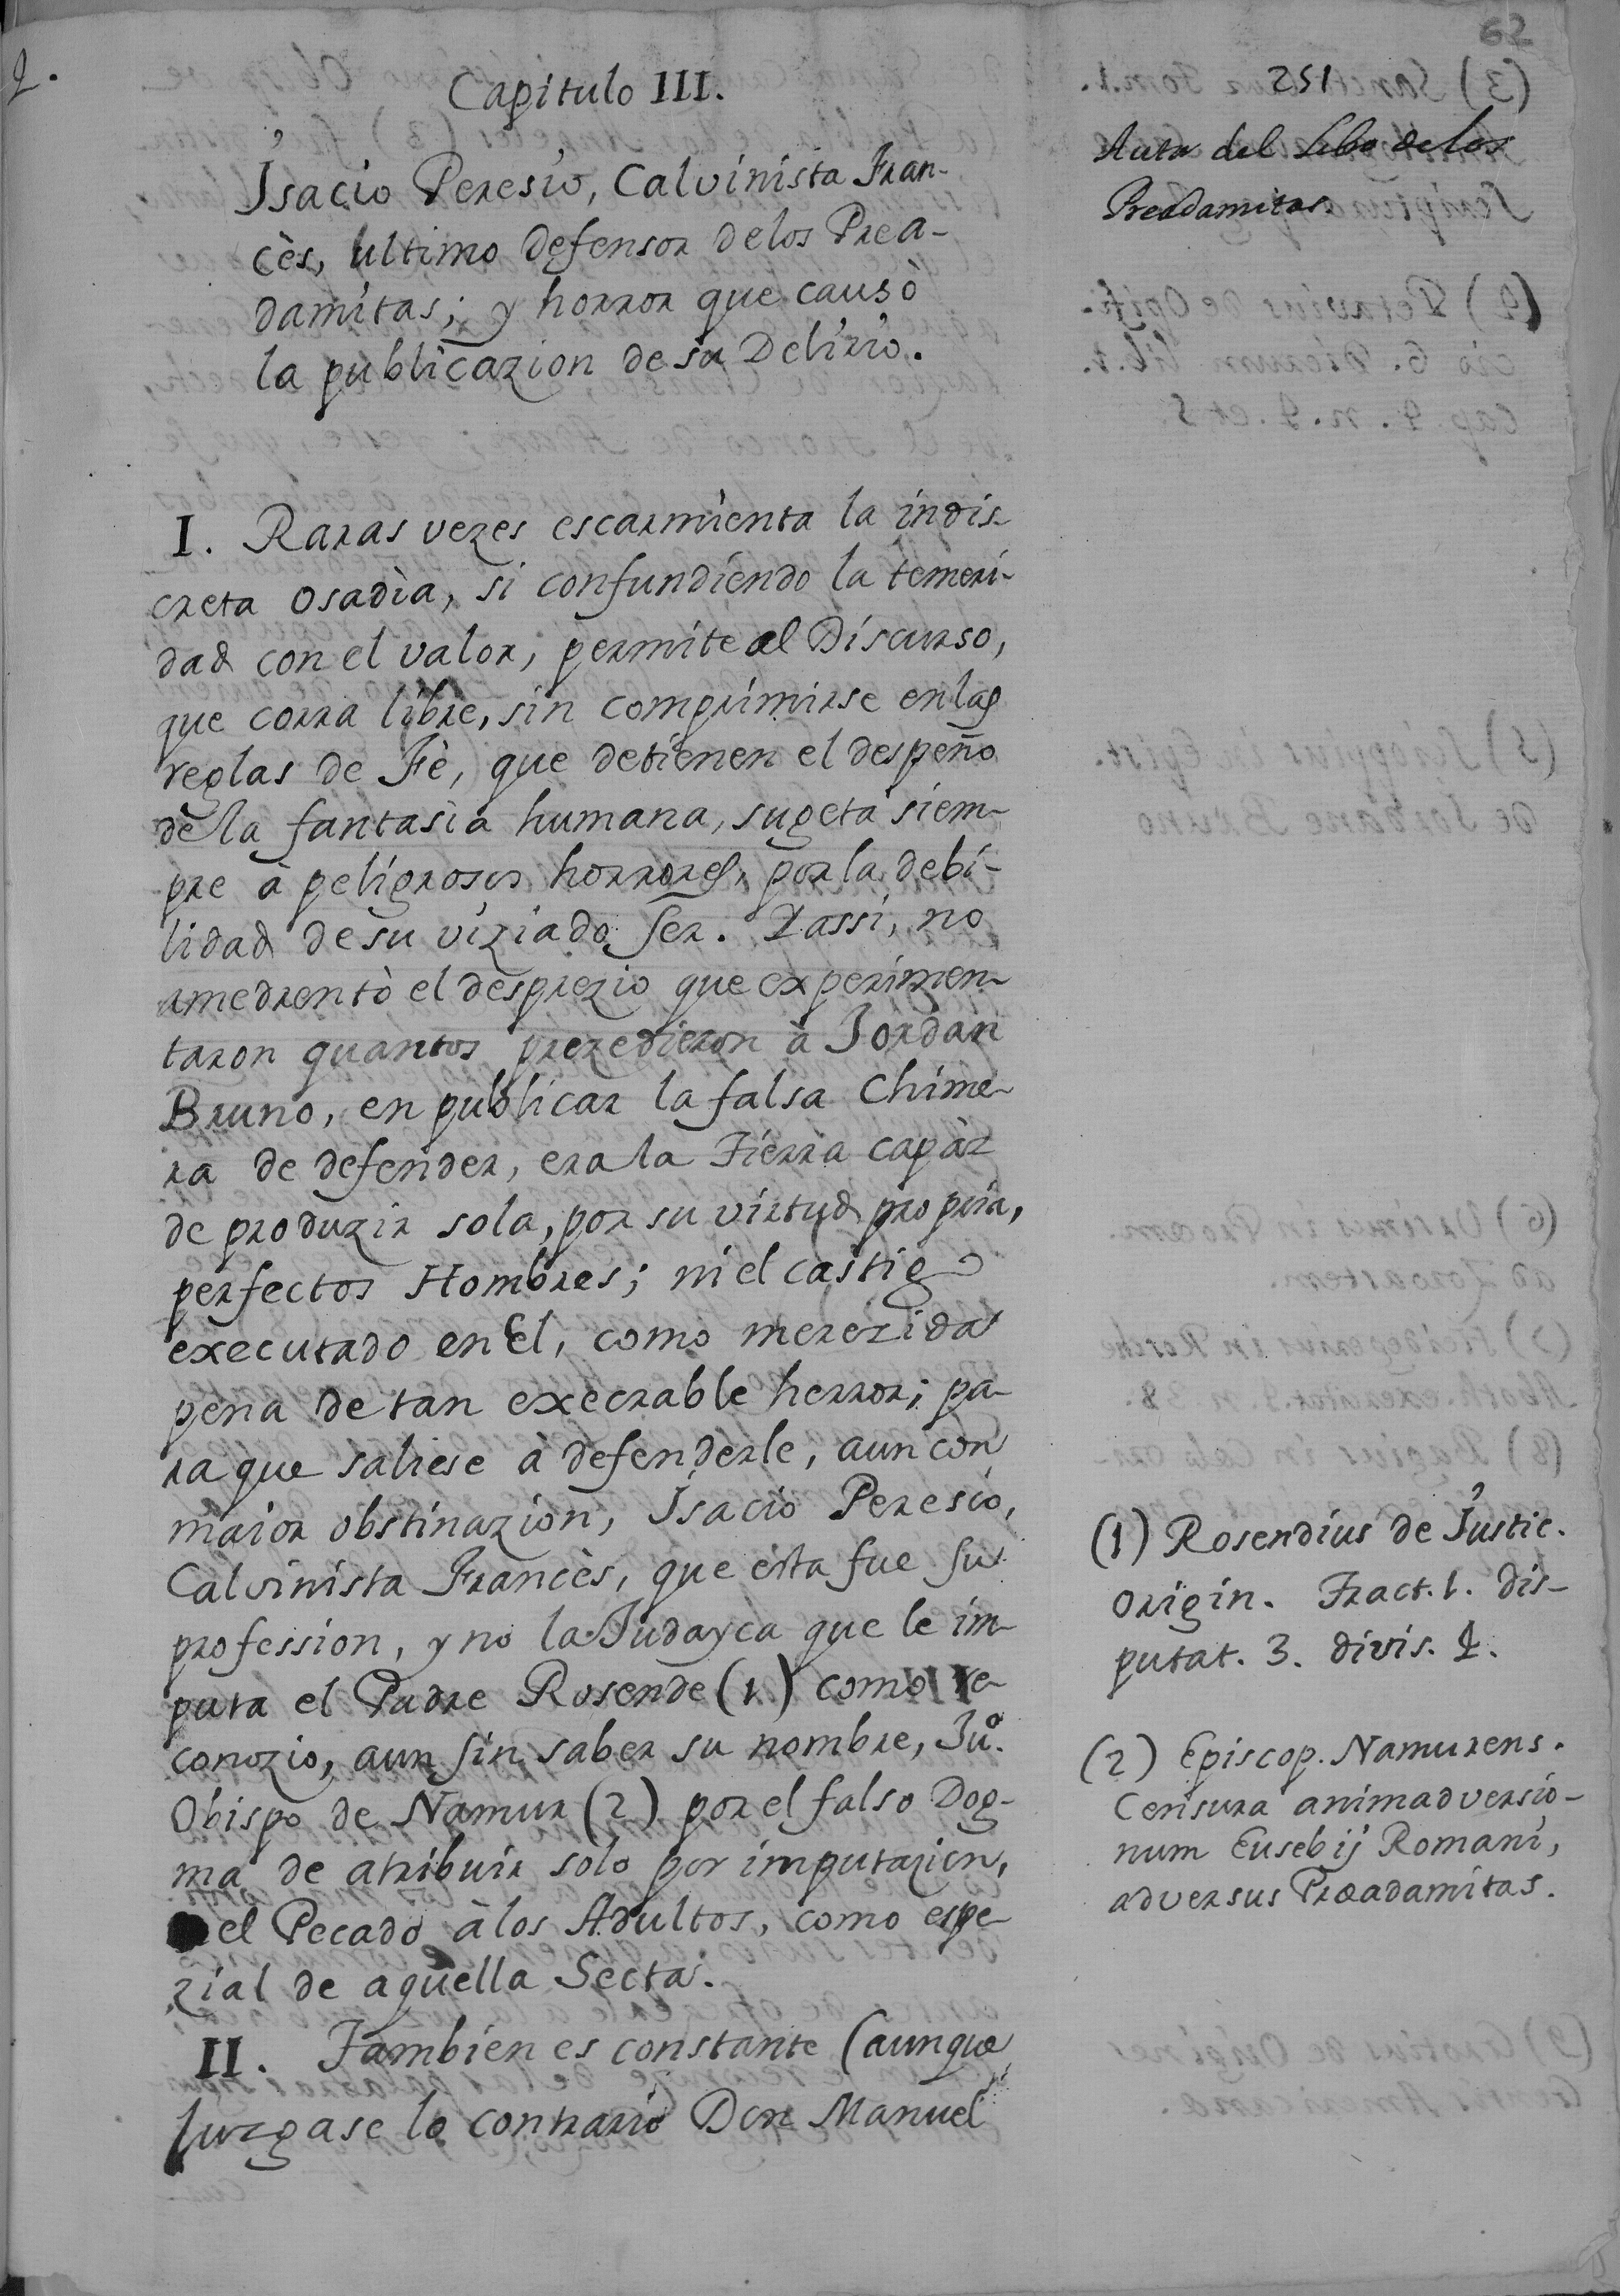 62
251
Capitulo III.
Isacio Peresio, Calvinista Fran-
cès, ultimo defensor delos Prea-
damitas; y horror que causò
la publicazion de su Delirio.
Autor del Libo delos
Preadamitas.
I. Raras vezes escarmienta la indis-
creta osadìa, si confundiendo la temeri-
dad con el valor, permite al Discurso,
que corra libre, sin comprimirse en las
reglas de Fè, que detienen el despeño
de la fantasìa humana, sugeta siem-
pre à peligrosos horrores, por la debi-
lidad de su viziado ser. I assi, no
amedrentò el desprezio que experimen-
taron quantos prezedieron à Jordan
Bruno, en publicar la falsa Chime-
ra de defender, era la Tierra capàz
de produzir sola, por su virtud propria,
perfectos Hombres; ni el castigo
executado en èl, como merezida
pena de tan execrable herror; pa-
ra que saliese à defenderle, aun con
maior obstinazion, Isacio Peresio,
Calvinista Francès, que esta fue su
profession, y no la Judayca que le im-
puta el Padre Rosende (1) como re-
conozio, aun sin saber su nombre, Juº.
Obispo de Namur (2) por el falso Dog-
ma de atribuir solo por imputazion,
el Pecado à los Adultos, como espe-
zial de aquella Secta.
II. Tambien es constante (aunque
juzgase lo contrario Don Manuel
(1) Rosendius de Justic.
Origin. Tract. 1. dis-
putat. 3. divis. 2.
(2) Episcop. Namurens.
Censura animadversio-
num Eusebij Romani,
adversus Præadamitas.